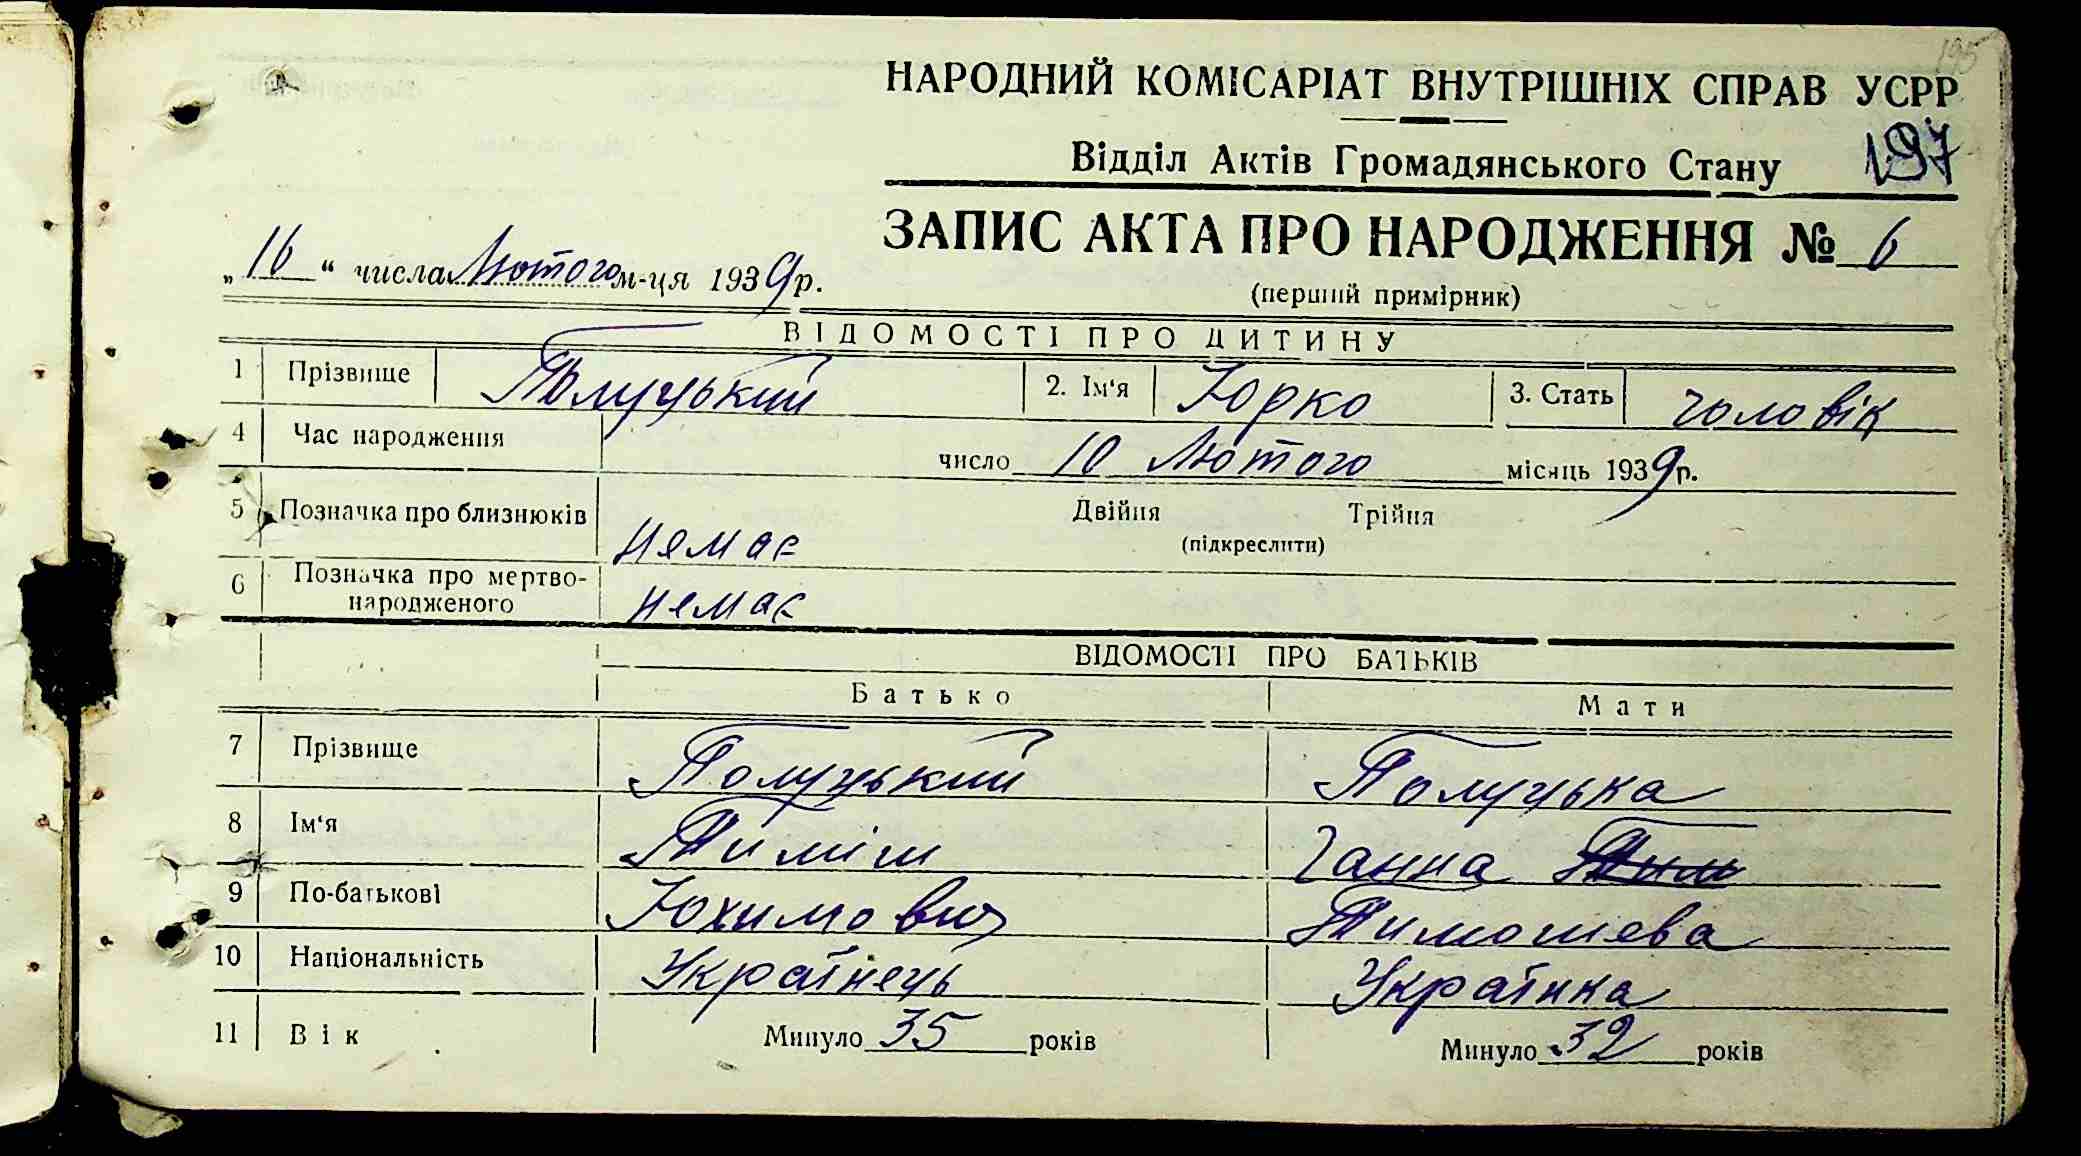 195
НАРОДНИЙ КОМІСАРІАТ ВНУТРІШНІХ СПРАВ УСРР
Відділ Актів Громадянського Стану 197
ЗАПИС АКТА ПРО НАРОДЖЕННЯ № 6
„16“ числа Лютого м-ця 1939р.
(перший примірник)
ВІДОМОСТІ ПРО ДИТИНУ
1 Прізвище Полуцький 2. Ім'я Юрко 3. Стать чоловік
4 Час народження число 10 Лютого місяць 1939р.
5 Позначка про близнюків немає Двійня Трійня
(підкреслити)
6 Позначка про мертво-
народженого немає
ВІДОМОСТІ ПРО БАТЬКІВ
Батько Мати
7 Прізвище Полуцький Полуцька
8 Ім'я Тиміш Ганна
9 По-батькові Юхимович Тимошева
10 Національність Українець Українка
11 Вік Минуло 35 років Минуло 32 років